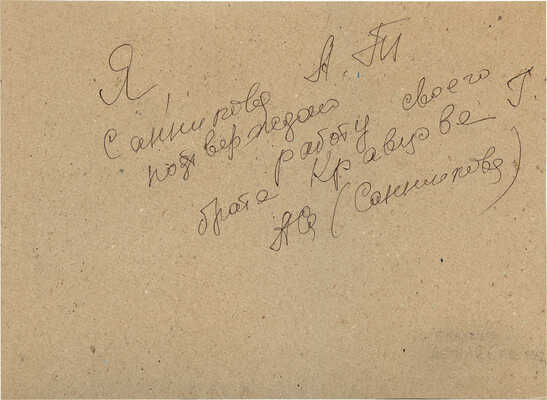 Я,
Санникова А. П
подтверждаю
работу своего
брата Кравцова Г.
(Санникова)